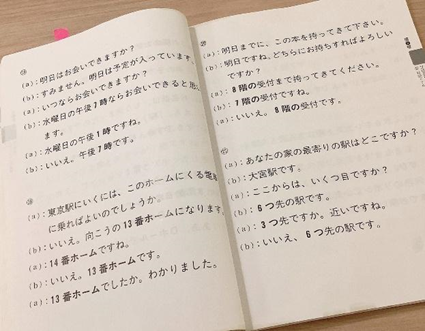 (a):明日はお会いできますか?
(b):すみません。明日は予定が入っています。
(a):いつならお会いできますか?
(b):水曜日の午後7時ならお会いできると思い
ます。
(a):水曜日の午後1時ですね。
(b):いいえ。午後7時です。
(a):東京駅にいくには、このホームにくる電車
に乗ればよいのでしょうか。
(b):いいえ。向こうの13番ホームになります。
(a):14番ホームですね。
(b):いいえ。13番ホームです。
(a):13番ホームでしたか。わかりました。
(a):明日までに、この本を持ってきて下さい。
(b):明日ですね。どちらにお持ちすればよろしい
ですか?
(a):8階の受付まで持ってきてください。
(b):7階の受付ですね。
(a):いいえ。8階の受付です。
(a):あなたの家の最寄りの駅はどこですか?
(b):大宮駅です。
(a):ここからは、いくつ目ですか?
(b):6つ先の駅です。
(a):3つ先ですか。近いですね。
(b):いいえ、6つ先の駅です。